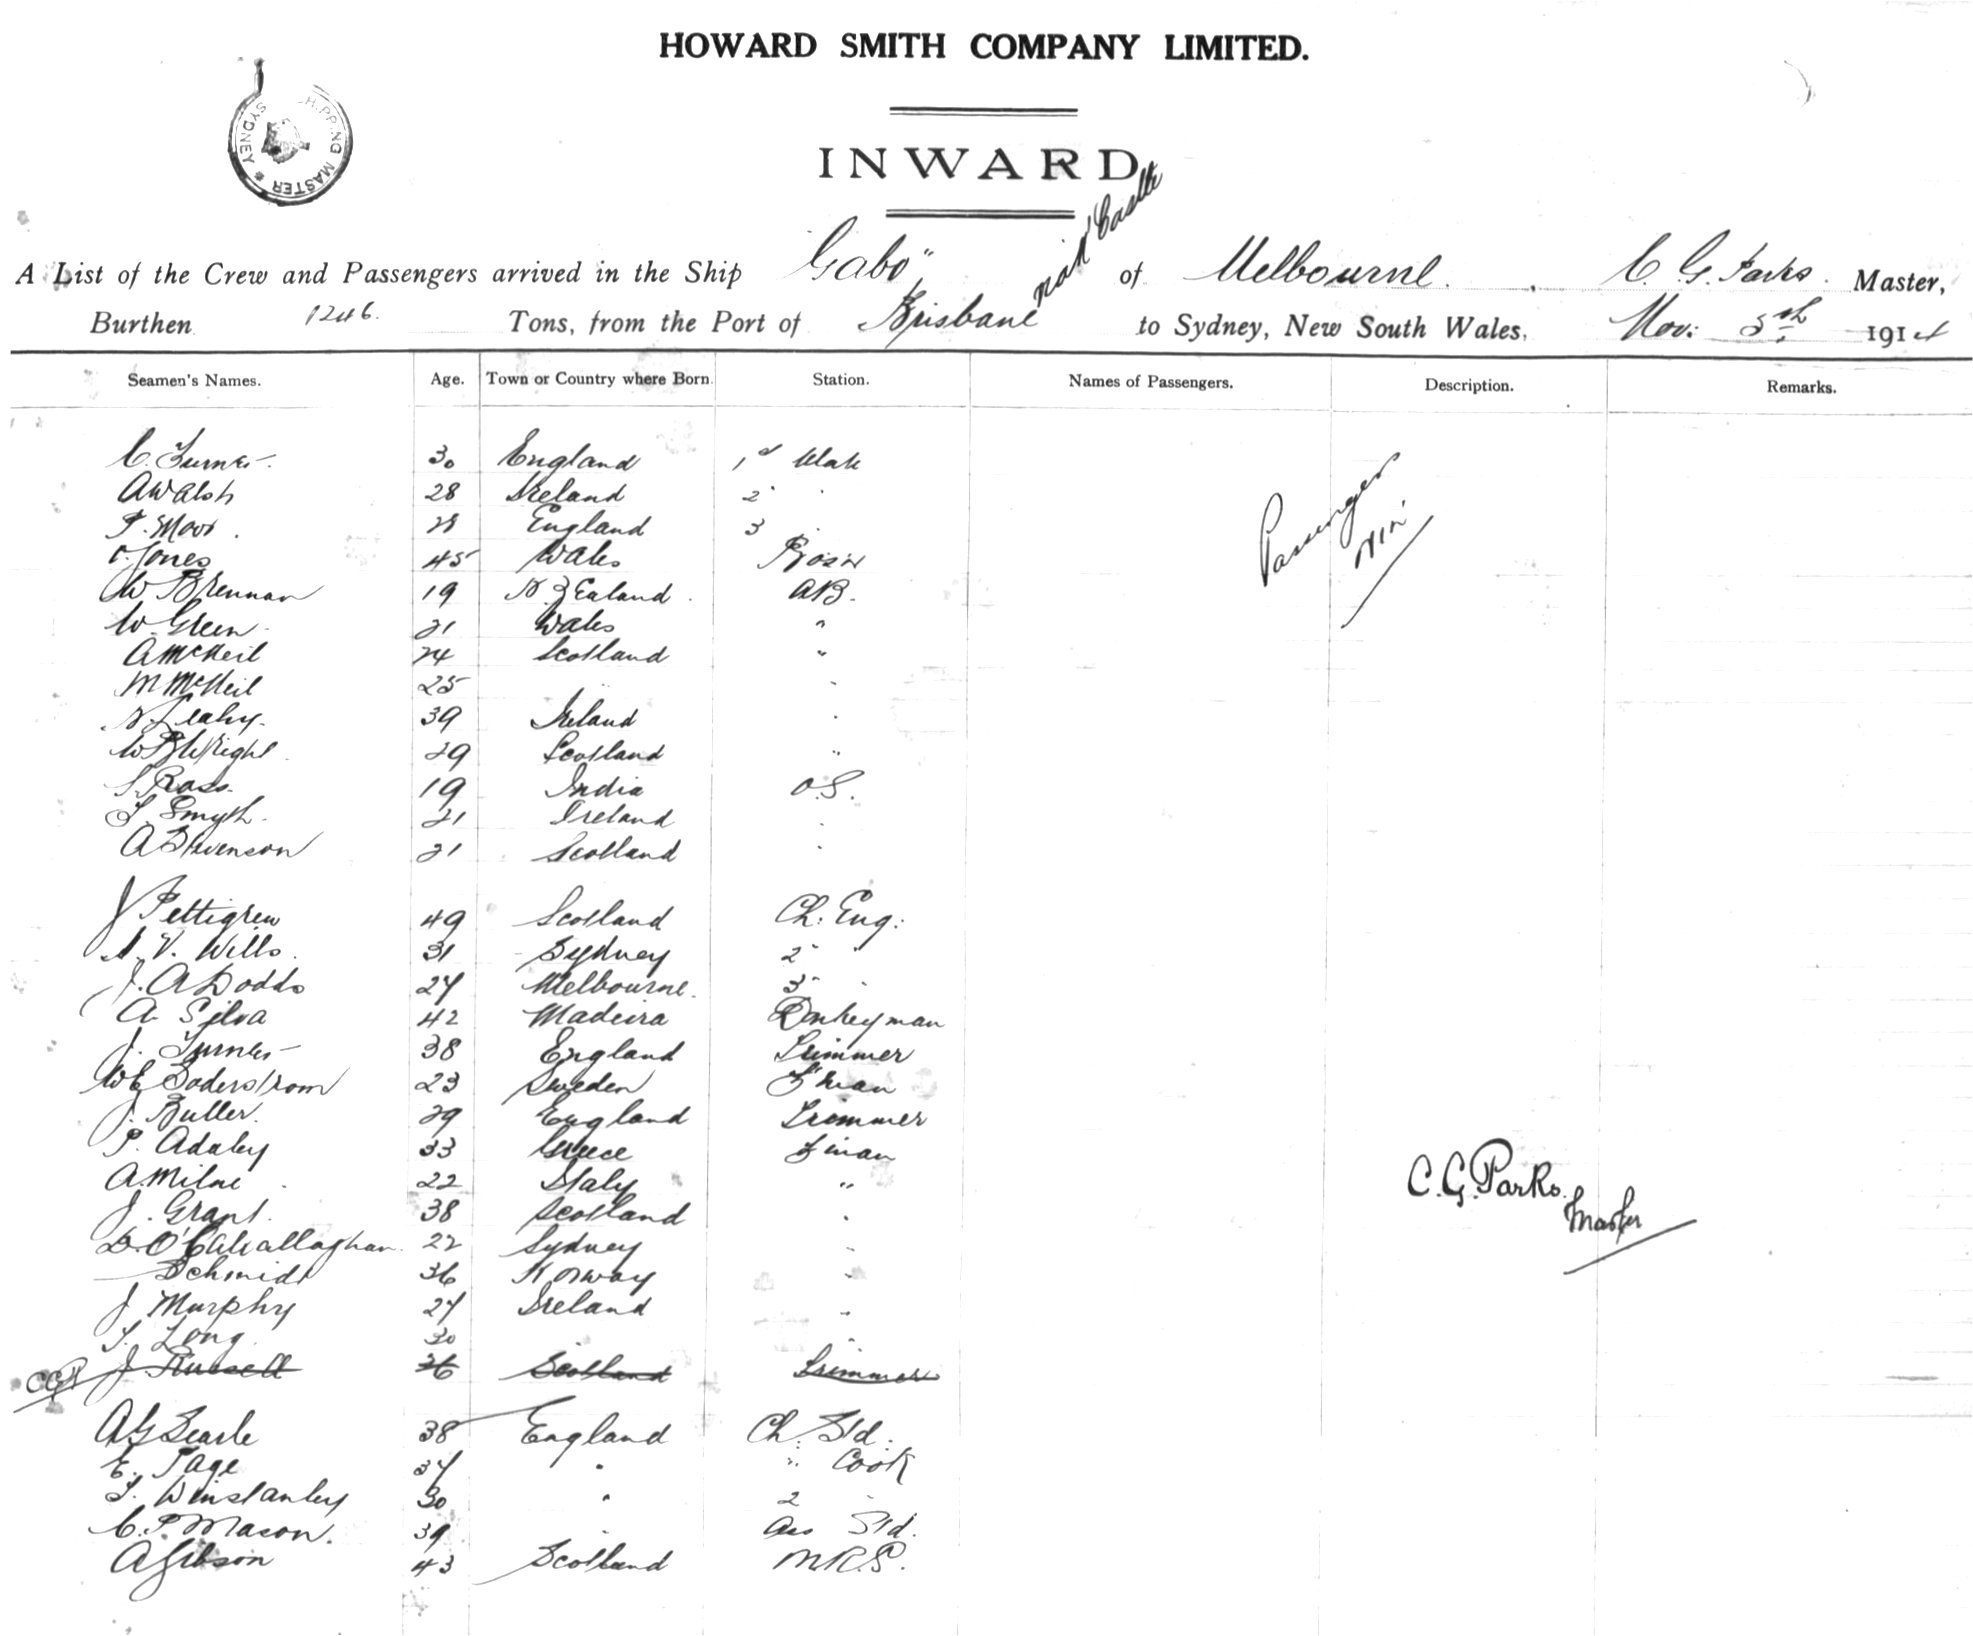 HOWARD SMITH COMPANY LIMITED.
SHIPPING MASTER * SYDNEY
INWARD
A List of the Crew and Passengers arrived in the Ship "Gabo" of Melbourne. C. G. Parks. Master,
Burthen 1246. Tons, from the Port of Brisbane Castle to Sydney, New South Wales, Nov: 5th 1914
Seamen's Names. Age. Town or Country where Born. Station. Names of Passengers. Description. Remarks.
C. Turner. 30 England 1st Mate
A Walsh 28 Ireland 2 "
P. Moor. England 3
Passenger Nil
Jones 45 Wales Bos'n
W Brennan 19 N. Zealand. AB.
W. Green. 21 Wales "
A McNeil 24 Scotland "
M McNeil 25 "
Leahy. 39 Ireland "
W B Wright 29 Scotland "
S Ross. 19 India O.S.
T. Smyth. 21 Ireland "
A Stevenson 21 Scotland "
J Pettigrew 49 Scotland Ch. Eng.
V. Wills. 31 Sydney 2 "
J. A Dodds 27 Melbourne. 3 "
A Silva 42 Madeira Donkeyman
J. Turner 38 England Trimmer
W E Soderstrom 23 Sweden F'man
J. Butler. 29 England Trimmer
P. Adaley 33 Greece F'man
A. Milne 22 Italy "
C. G. Parks. Master
J. Grant. 38 Scotland "
D. O'Callaghan. 22 Sydney "
Schmidt 36 Norway "
J Murphy 27 Ireland "
T. Long 30 "
CGP J Russell 36 Scotland Trimmer
A G Searle 38 England Ch. Std.
E. Page 37 " " Cook
T. Winstanley 30 " 2 "
C. P. Mason. 39 Ass Std.
A Gibson 43 Scotland M.R.S.